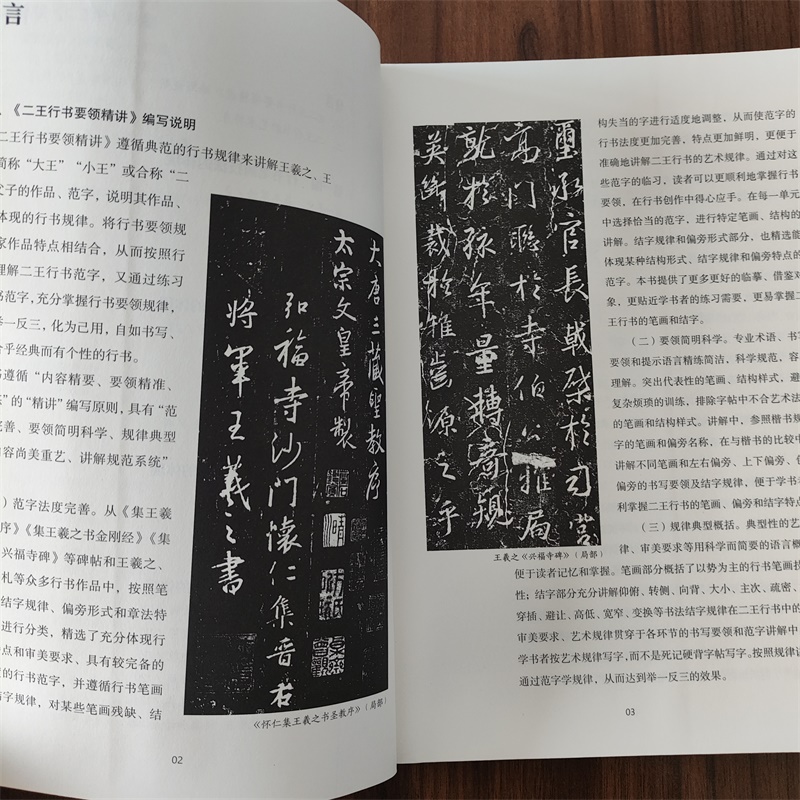 言
《二王行书要领精讲》编写说明
二王行书要领精讲》遵循典范的行书规律来讲解王羲之、王
简称“大王”“小王”或合称“二
父子的作品、范字，说明其作品、
体现的行书规律。将行书要领规
家作品特点相结合，从而按照行
理解二王行书范字，又通过练习
书范字，充分掌握行书要领规律，
举一反三，化为己用，自如书写、
合乎经典而有个性的行书。
书遵循“内容精要、要领精准、
”的“精讲”编写原则，具有“范
完善、要领简明科学、规律典型
内容尚美重艺、讲解规范系统”
）范字法度完善。从《集王羲
序》《集王羲之书金刚经》《集
兴福寺碑》等碑帖和王羲之、
札等众多行书作品中，按照笔
结字规律、偏旁形式和章法特
进行分类，精选了充分体现行
点和审美要求、具有较完备的
的行书范字，并遵循行书笔画
字规律，对某些笔画残缺、结
大唐三藏聖教序
太宗文皇帝製
弘福寺沙門懷仁集晉右
將軍王羲之書
《怀仁集王羲之书圣教序》（局部）
02
璽承官長戟於司
高門於寺伯公推局
年量轉奇規
英斷裁於源之乎
王羲之《兴福寺碑》（局部）
构失当的字进行适度地调整，从而使范字的
行书法度更加完善，特点更加鲜明，更便于
准确地讲解二王行书的艺术规律。通过对这
些范字的临习，读者可以更顺利地掌握行书
要领，在行书创作中得心应手。在每一单元
中选择恰当的范字，进行特定笔画、结构的
讲解。结字规律和偏旁形式部分，也精选能
体现某种结构形式、结字规律和偏旁特点的
范字。本书提供了更多更好的临摹、借鉴对
象，更贴近学书者的练习需要，更易掌握二
王行书的笔画和结字。
（二）要领简明科学。专业术语、书写
要领和提示语言精练简洁，科学规范，容
理解。突出代表性的笔画、结构样式，避
复杂烦琐的训练，排除字帖中不合艺术法
的笔画和结构样式。讲解中，参照楷书规
字的笔画和偏旁名称，在与楷书的比较中
讲解不同笔画和左右偏旁、上下偏旁、包
偏旁的书写要领及结字规律，便于学书者
利掌握二王行书的笔画、偏旁和结字特点
（三）规律典型概括。典型性的艺
律、审美要求等用科学而简要的语言概
便于读者记忆和掌握。笔画部分概括了以势为主的行书笔画技
性；结字部分充分讲解仰俯、转侧、向背、大小、主次、疏密、
穿插、避让、高低、宽窄、变换等书法结字规律在二王行书中的
审美要求、艺术规律贯穿于各环节的书写要领和范字讲解中
学书者按艺术规律写字，而不是死记硬背字帖写字。按照规律讲
通过范字学规律，从而达到举一反三的效果。
03